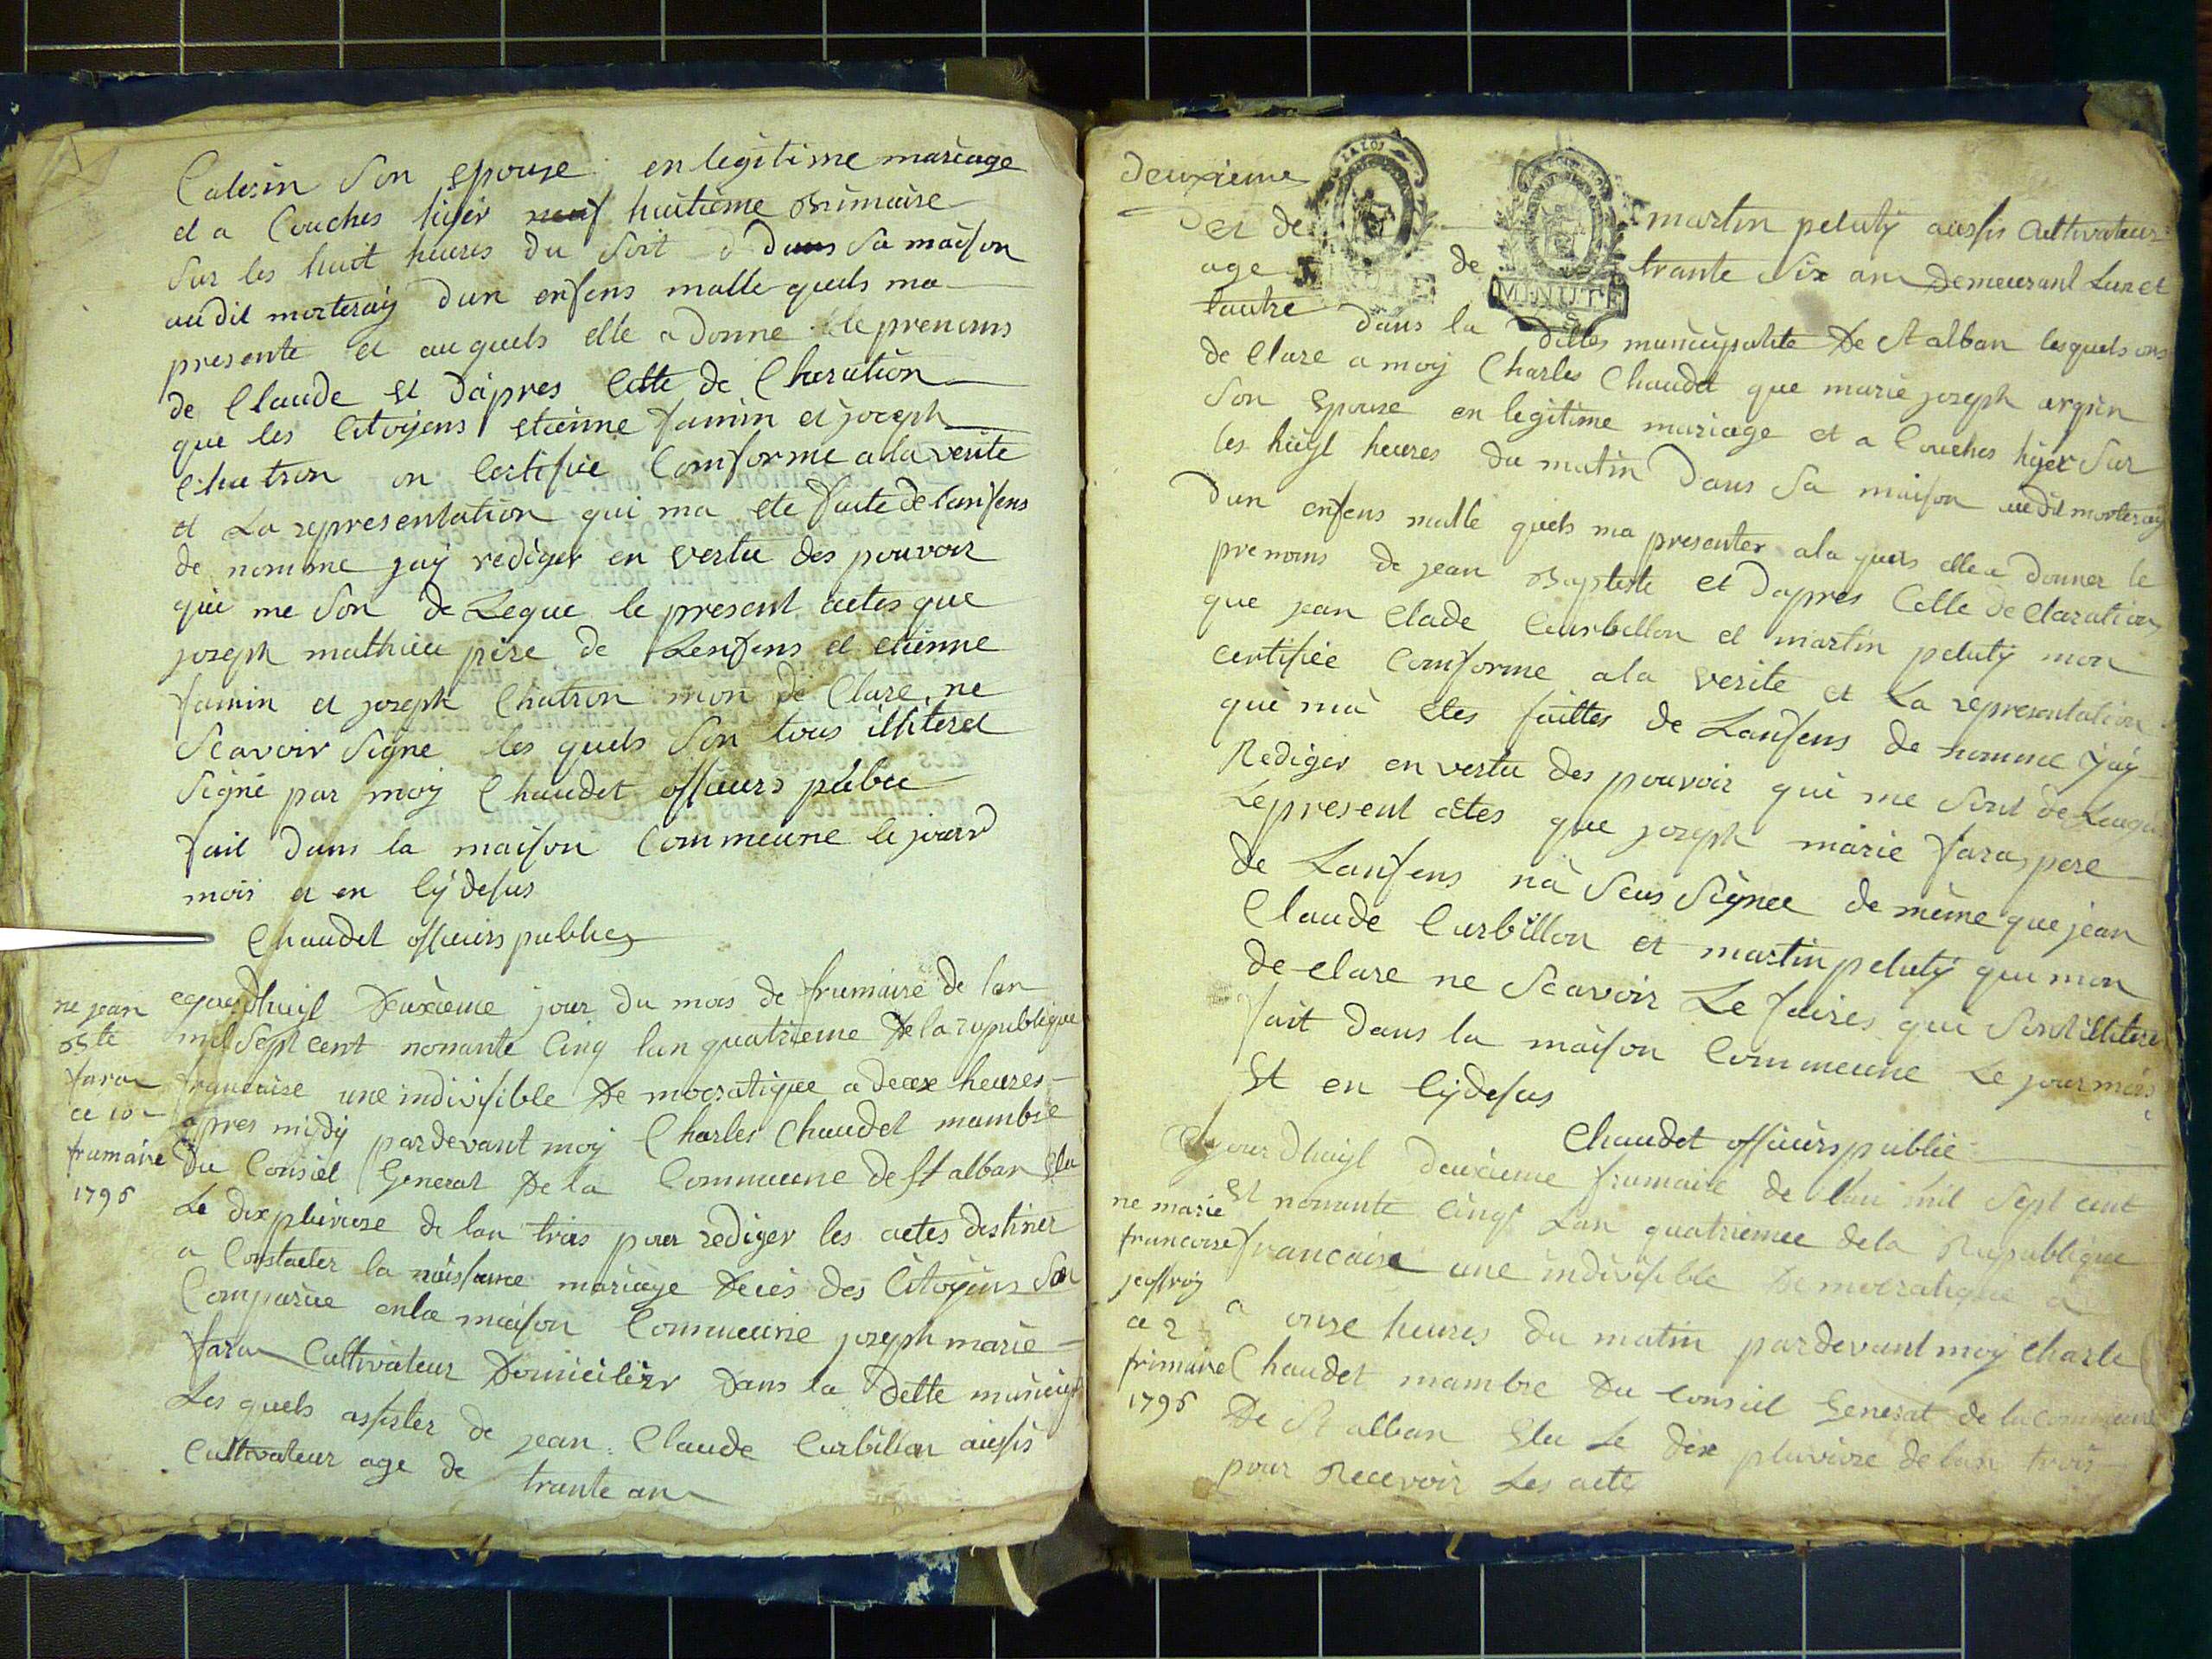 Calosin son epouse en legitime mariage
et a Couches hyer neuf huitieme brimaire
sur les huit heures du soit d dans sa maison
audit morteraij dun enfens malle quels ma
presente et auquels elle a donne le prenoms
de Claude Et dapres Cette de Claration
que les Citoyens etienne famin et joseph
Chatron on Certifiée Comforme a la verite
et La representation qui ma ete faite de lanfens
de nomme jaij rediger en vertu des pouvoir
qui me son de Legue le present actes que
joseph mathieu père de Lenfens et etienne
famin et joseph Chatron mon de Clare ne
Scavoir Signe les quels Son tous illiteret
Signé par moij Chaudet officiers public
fait dans la maison Commeune le jour
mois et en Cijdesus
Chaudet officiers publics
ne jean
Bte
fara
ce 10
frumaire
1795
egourdhuijl Deuxieme jour du mois de frumaire de lan
mil Sept cent nonante Cinq lan quatrieme De la republique
francaise une indivisible De mocratique a deux heures
apres midij pardevant moij Charles Chaudet mambre
Du Consiel General De la Commeune de St alban Elu
Le dix pluviose de lan trois pour rediger les actes destiner
a Constacter la naissance mariage Deces des Citoyens Son
Comparüe en la maison Commeune joseph marie
fara Cultivateur Domicilier Dans la Dette municip
Les quels assister de jean Claude Curbillon aussis
Cultivateur age de trante an
deuxieme
et de martin pelutij aussis Cultivateur
age de trante Six an Demeurant Lun et
lautre dans la Dittes municipalite De St alban lesquels ons
de Clare a moij Charles Chaudet que marie joseph argin
Son Epouse en legitime mariage et a Couches hyer Sur
les huijt heures du matin Dans Sa maison audit morteraij
Dun enfens malle quels ma presenter a la quels elle a donner le
prenoms de jean Baptiste et Dapres Celle de Claration
que jean Clade Courbillon et martin pelutij mon
certifiée Comforme a la verite et La representation
qui mà etes faittes de Lanfens de nomme j'aij
Rediger en vertu des pouvoir qui me Sont de Leugu
Le present actes que joseph marie fara pere
de Lanfens nà Scus Signee de mème que jean
Claude Curbillon et martin pelutij qui mon
de clare ne Scavoir Le faires qui Sont illitere
fait dans la maison Commeune Le jour mois
Et en Cijdesus
Chaudet officiers public
ne marie
francoise
jeoffroij
ce 2
frimaire
1795
Egourdhuijl deuxieme frumaire de lan mil Sept cent
Et nonante Cinqt Lan quatriemee de la Republique
francaise une indivisible Democratique a
a onse heures du matin pardevant moij Charle
Chaudet mambre Du Consiel General de la commeune
De St alban Elu Le dix pluviose de lan trois
pour Recevoir Les acte